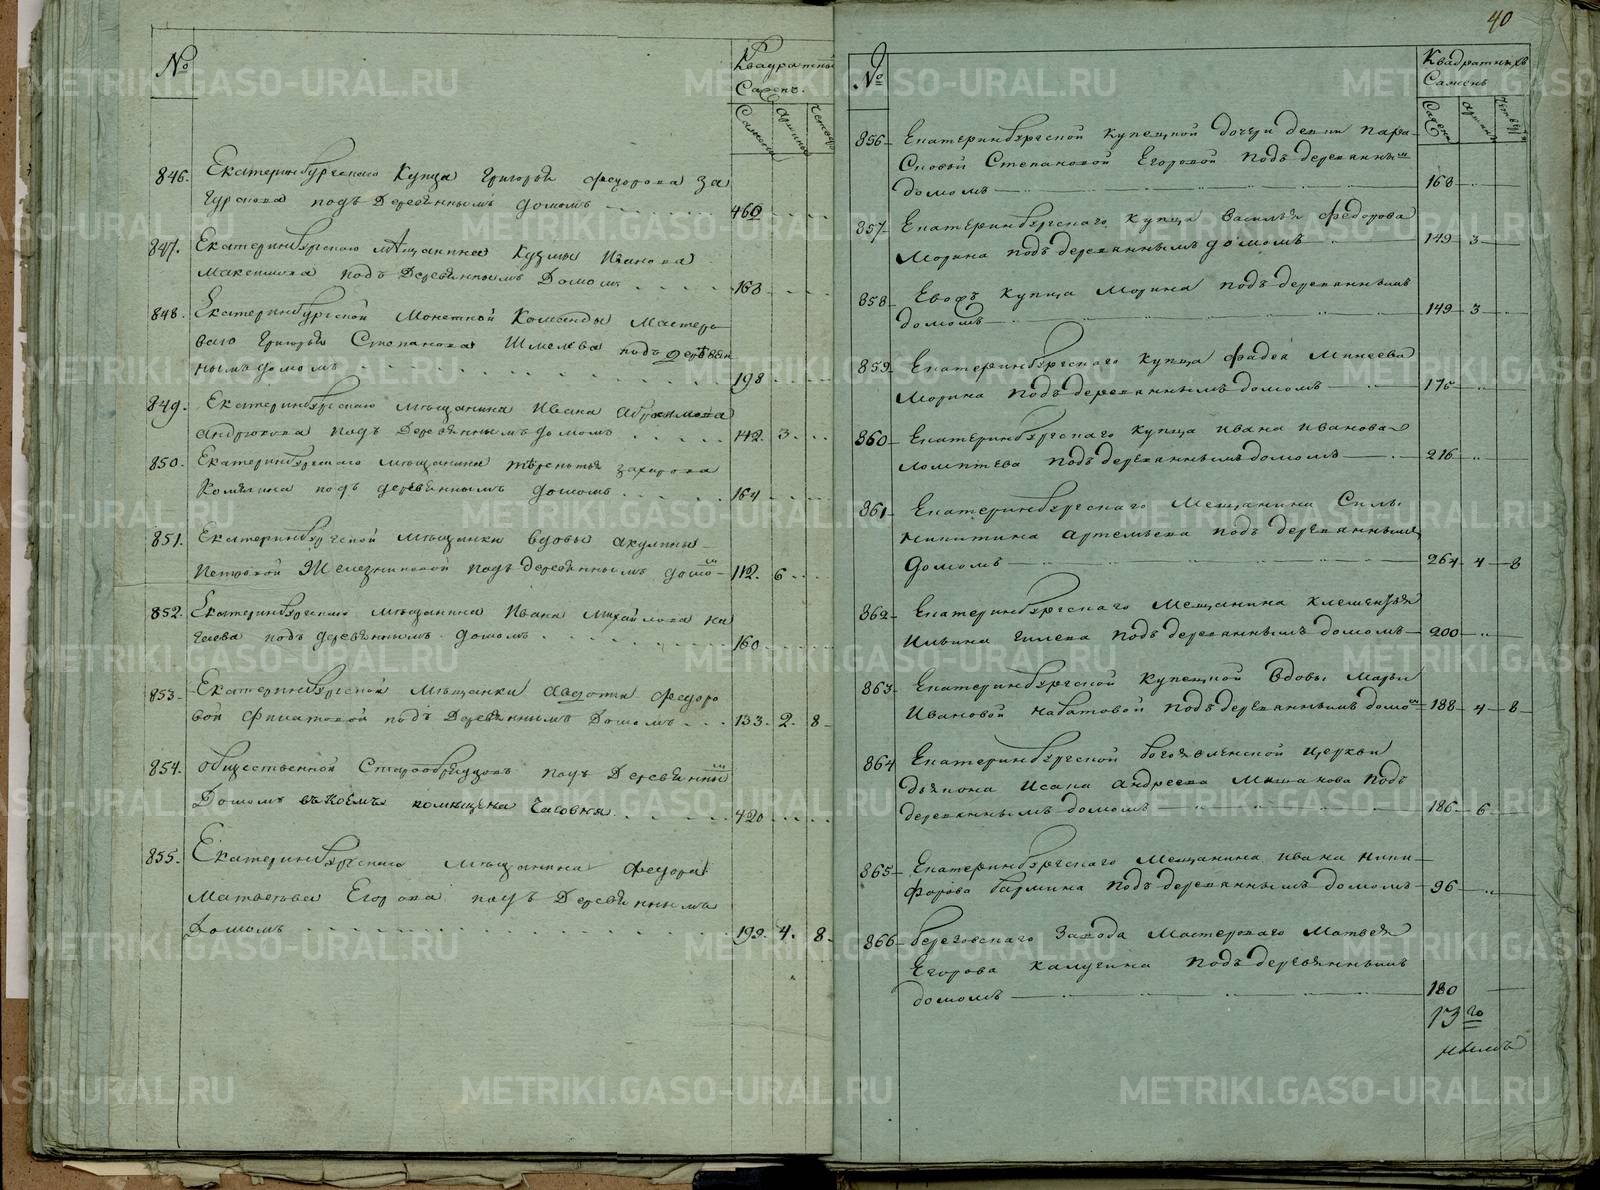 №
Квадратных
Сажень.
Сажени
Аршины
Четверти
846. Екатеринбургскаго Купца Григорья Федорова За
Гурскова подъ Деревяннымъ домомъ 460
847. Екатеринбургскаго мѣщанина Кузмы Иванова
Максимова подъ Деревяннымъ Домомъ 163
848. Екатеринбургской Монетной Команды Мастеро
ваго Григорья Степанова Шмелева подъ дерѣвян
нымъ домомъ 198
849. Екатеринбургскаго мѣщанина Ивана
Андрюкова подъ Деревяннымъ домомъ 142 3
850. Екатеринбургскаго мѣщанина терентья захарова
подъ деревяннымъ домомъ 164
851. Екатеринбургской мѣщанки вдовы акулины
Петровой Железниковой подъ деревяннымъ домо 112 6
852. Екатеринбургскаго мѣщанина Ивана Михайлова На
гаева подъ деревяннымъ домомъ 160
853. Екатеринбургской мѣщанки Авдотьи Федоро
вой Филатовой подъ Деревяннымъ Домомъ 133 2 8
854. общественной Старообрядцовъ подъ Деревянны
Домомъ въ коемъ помещена Часовня 420
855. Екатеринбургскаго мѣщанина Федора
Матвеева Егорова подъ Деревяннымъ
Домомъ 199 4 8
40
№
Квадратныхъ
Сажень
Сажен
Аршин
Четверти
856 Екатеринбургской купецкой дочери девки пара
сковьи Степановой Егоровой подъ деревянны
домомъ 168
857 Екатеринбургскаго купца Василья Федорова
Морина подъ деревяннымъ домомъ 149 3
858 Евожъ купца Морина подъ деревяннымъ
домомъ 149 3
859 Екатеринбургскаго купца Фадея Минеева
Морина подъ деревяннымъ домомъ 175
860 Екатеринбургскаго купца ивана иванова
ломтева подъ деревяннымъ домомъ 216
861 Екатеринбургскаго Мещанина Силы
никитина артемьева подъ деревяннымъ
домомъ 264 4 8
862 Екатеринбургскаго Мещанина клементья
Ильина гилева подъ деревяннымъ домомъ 200
863 Екатеринбургской Купецкой Вдовы Марьи
Ивановой набатовой подъ деревяннымъ домо 188 4 8
864 Екатеринбургской богоявленской церкви
дьякона Исака Андреева подъ
деревяннымъ домомъ 186 6
865 Екатеринбургскаго Мещанина ивана ники
форова бармина подъ деревяннымъ домомъ 96
866 березовскаго Завода Мастероваго Матвея
Егорова калугина подъ деревяннымъ
домомъ 180
13го
METRIKI.GASO-URAL.RU